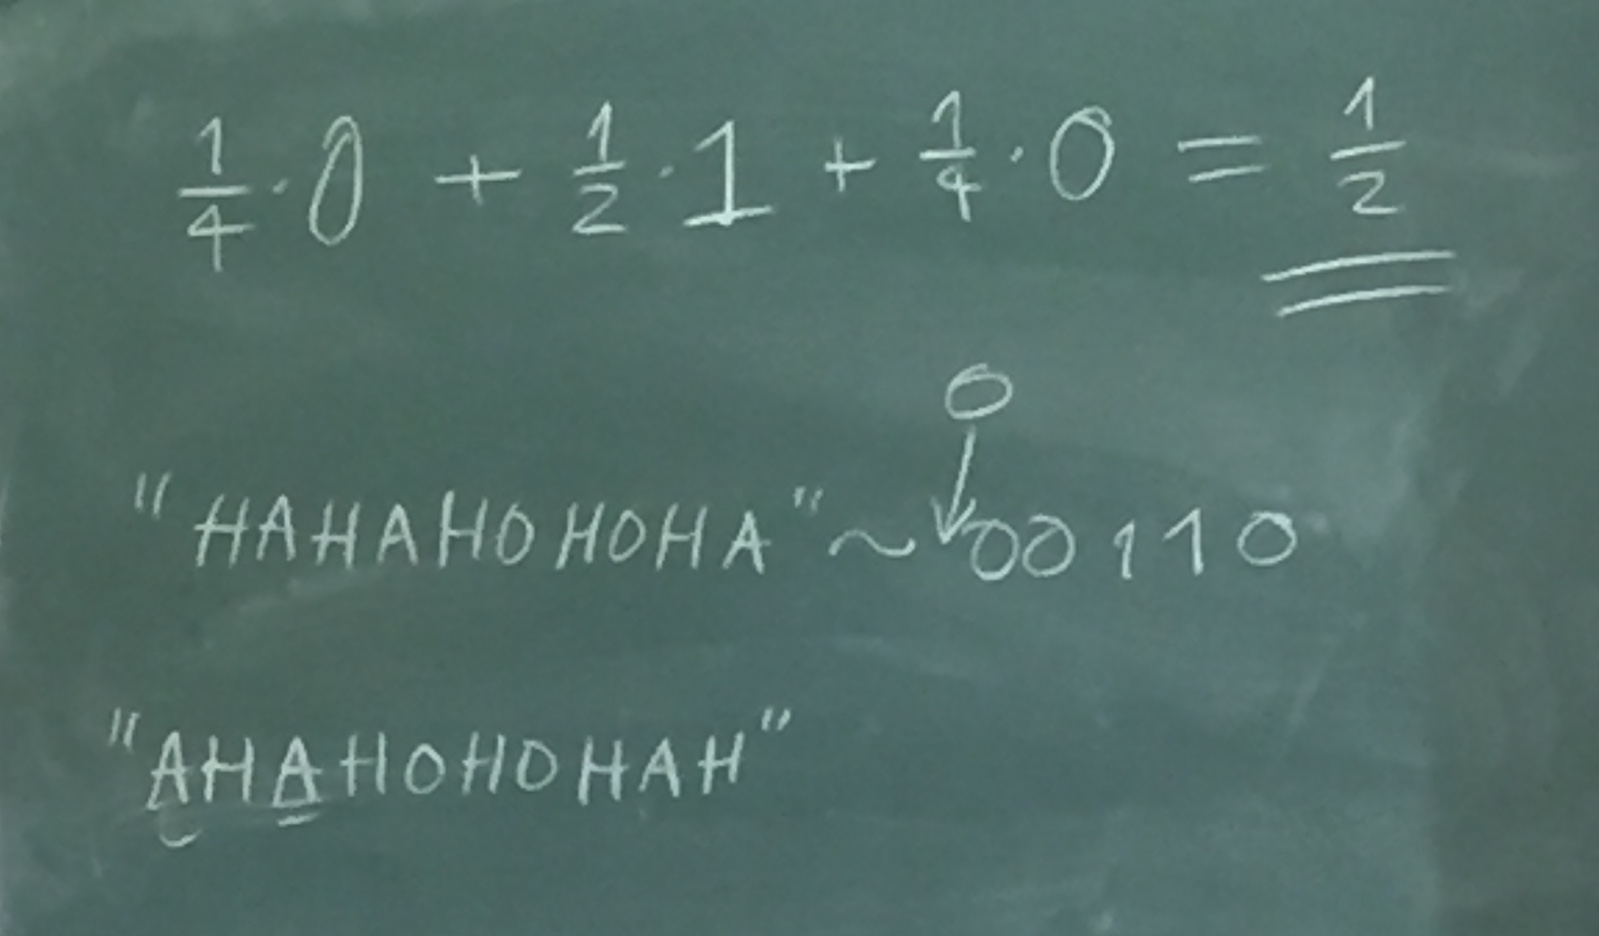 1/4 · 0 + 1/2 · 1 + 1/4 · 0 = 1/2
0
"HAHAHOHOHA" ~ 00110
"AHAHOHOHAH"